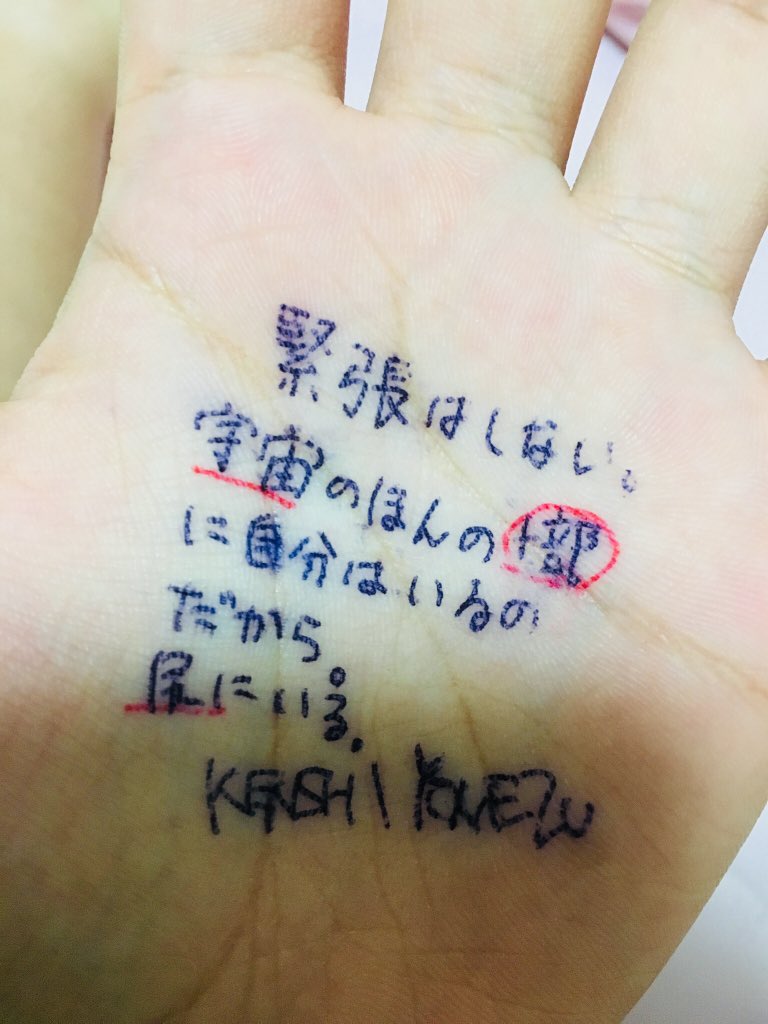 緊張はしない。
宇宙のほんの1部
に自分はいるの
だから
にいる。
KENSHI YONEZU